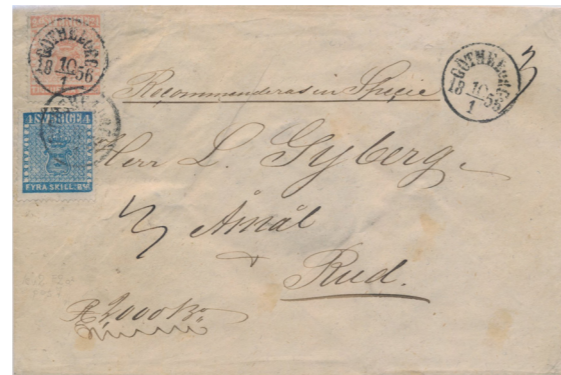 GÖTHEBORG
18 10 56
1
GÖTHEBORG
18 10 56
1
Recommenderas in Specie
SVERIGE
FYRA SKILL. Bco
Herr L. Gyberg.
Åmål
Rud.
2000